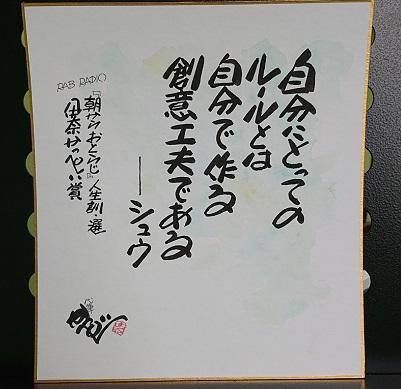 自分にとっての
ルールとは
自分で作る
創意工夫である
――シュウ
RAB RADIO
『朝からおとらじ』人生訓・選
伊奈かっぺい賞